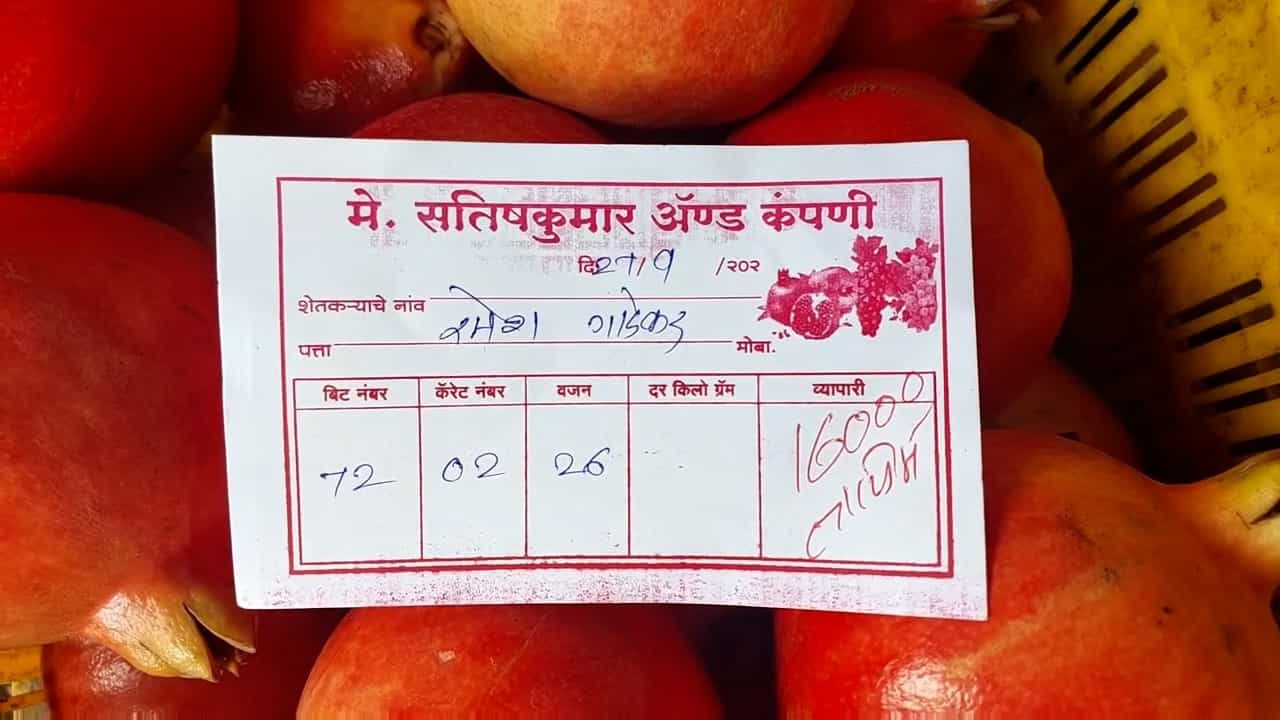 मे. सतिषकुमार ॲण्ड कंपणी
दि 27/9 /२०२
शेतकऱ्याचे नांव
रमेश गाडेकर
पत्ता मोबा.
बिट नंबर कॅरेट नंबर वजन दर किलो ग्रॅम व्यापारी
72 02 26 16000